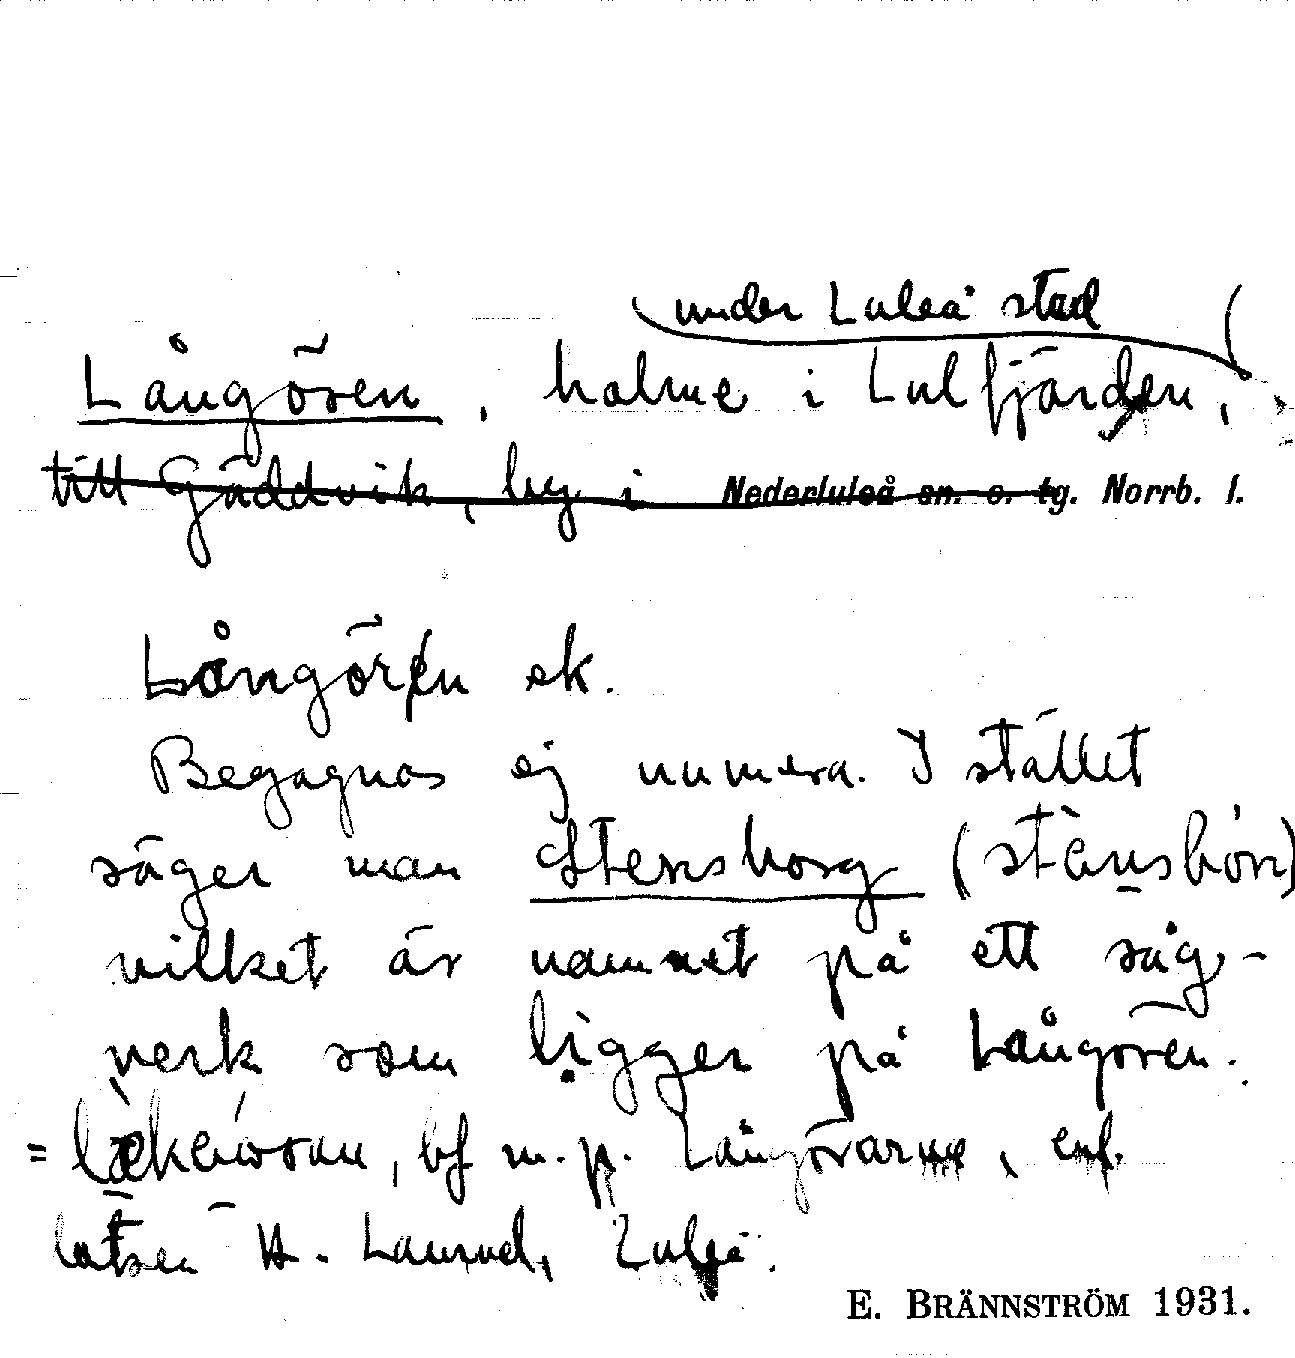 under Luleå stad
Långören, holme i Lulfjärden,
till Gäddvik, by i Nederluleå sn. o. tg. Norrb. l.
Långören ek.
Begagnas ej numera. I stället
säger man Stensborg
vilket är namnet på ett såg-
verk som ligger på Långören.
bf m. p. Långörarna, enl.
lotsen H. Luleå.
E. BRÄNNSTRÖM 1931.